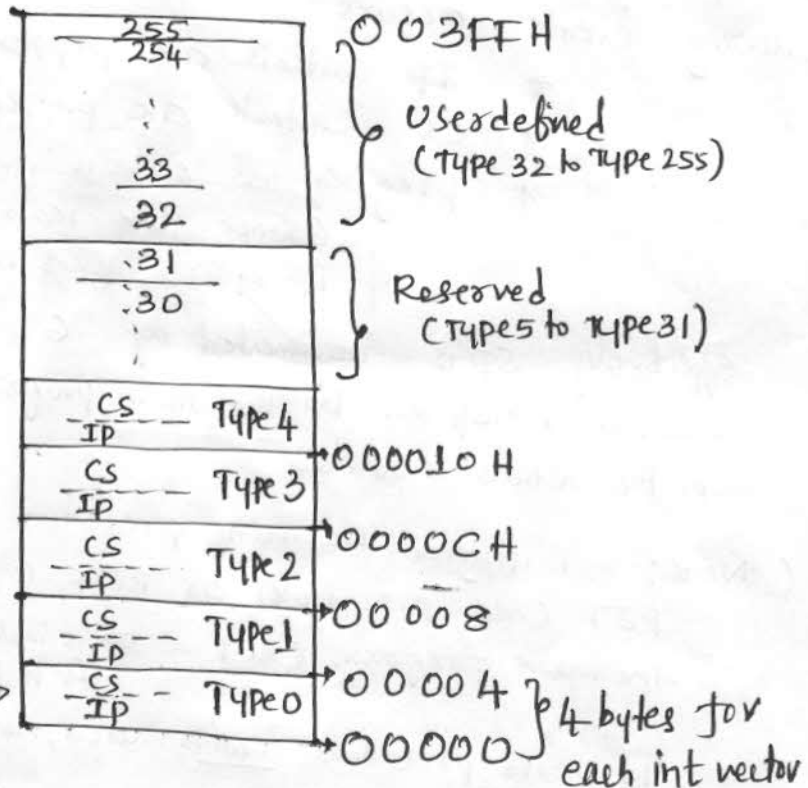 255 003FFH
254
Userdefined
(Type 32 to Type 255)
33
32
31
30
Reserved
(Type5 to Type31)
CS
IP Type 4
000010H
CS
IP Type 3
0000CH
CS
IP Type 2
00008
CS
IP Type1
00004
CS
IP Type0
4 bytes for
00000
each int vector